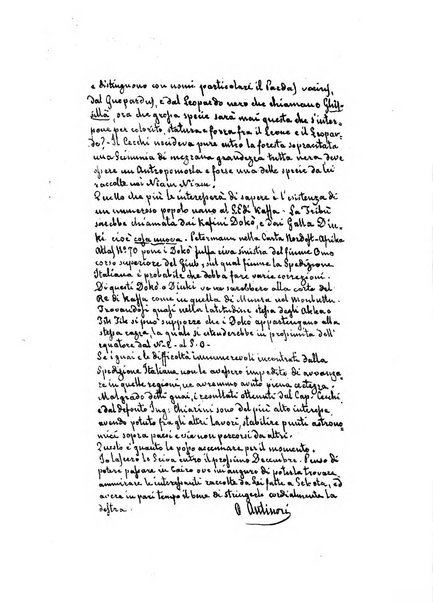 e distinguono con nomi particolari il Pardus varius,
dal Guepardus, e dal Leopardo nero che chiamano Ghis-
sillà, ora che grossa specie sarà mai questa che s'inter-
pone per colorito, statura e forza fra il Leone e il Leopar-
do? - Il Cecchi uccideva pure entro la foresta sopracitata
una Scimmia di mezzana grandezza tutta nera, deve
essere un Antropomorfa e forse una delle specie da lei
raccolte nei Niam Niam.
Quello che più la interesserà di sapere è l'esistenza di
un numeroso popolo nano al S.E di Kaffa - La Tribù
sarebbe chiamata dai Kafini Dokò, e dai Galla Din-
ki cioè cosa nuova. Petermann nella Carta Nordost-Afrika
Atlas N.º 70 pone i Dokò sulla riva sinistra del fiume Omo
corso superiore del Giub, sul qual fiume la Spedizione
Italiana è probabile che debba fare varie correzioni.
Di questi Dokò o Dinki ve ne sarebbero alla corte del
Re di Kaffa come in quella di Munsa nel Monbuttu.
Trovandosi quasi nella latitudine stessa degli Akka o
Tik Tik si può supporre che i Dokò appartengano alla
stessa razza, la quale si estenderebbe in prossimità dell'
equatore dal N-E. al S.O -
Se i guai e le difficoltà innumerevoli incontrati dalla
Spedizione Italiana non le avessero impedito di avanza-
re in quelle regioni, ne avremmo avuto piena contezza.
Malgrado detti guai, i resultati ottenuti dal Cap. Cecchi,
e dal defonto Ing: Chiarini sono del più alto interesse,
avendo potuto fra gli altri lavori, stabilire punti astrono-
mici sopra paesi e vie non percorsi da altri.
Questo è quanto le posso accennare per il momento.
Io lascerò lo Scioa entro il prossimo Decembre. Penso di
poter passare in Cairo ove mi auguro di poterla trovare,
ammirare le interessanti raccolte da lei fatte a Sokota, ed
avere in pari tempo il bene di stringerle cordialmente la
destra.
O Antinori